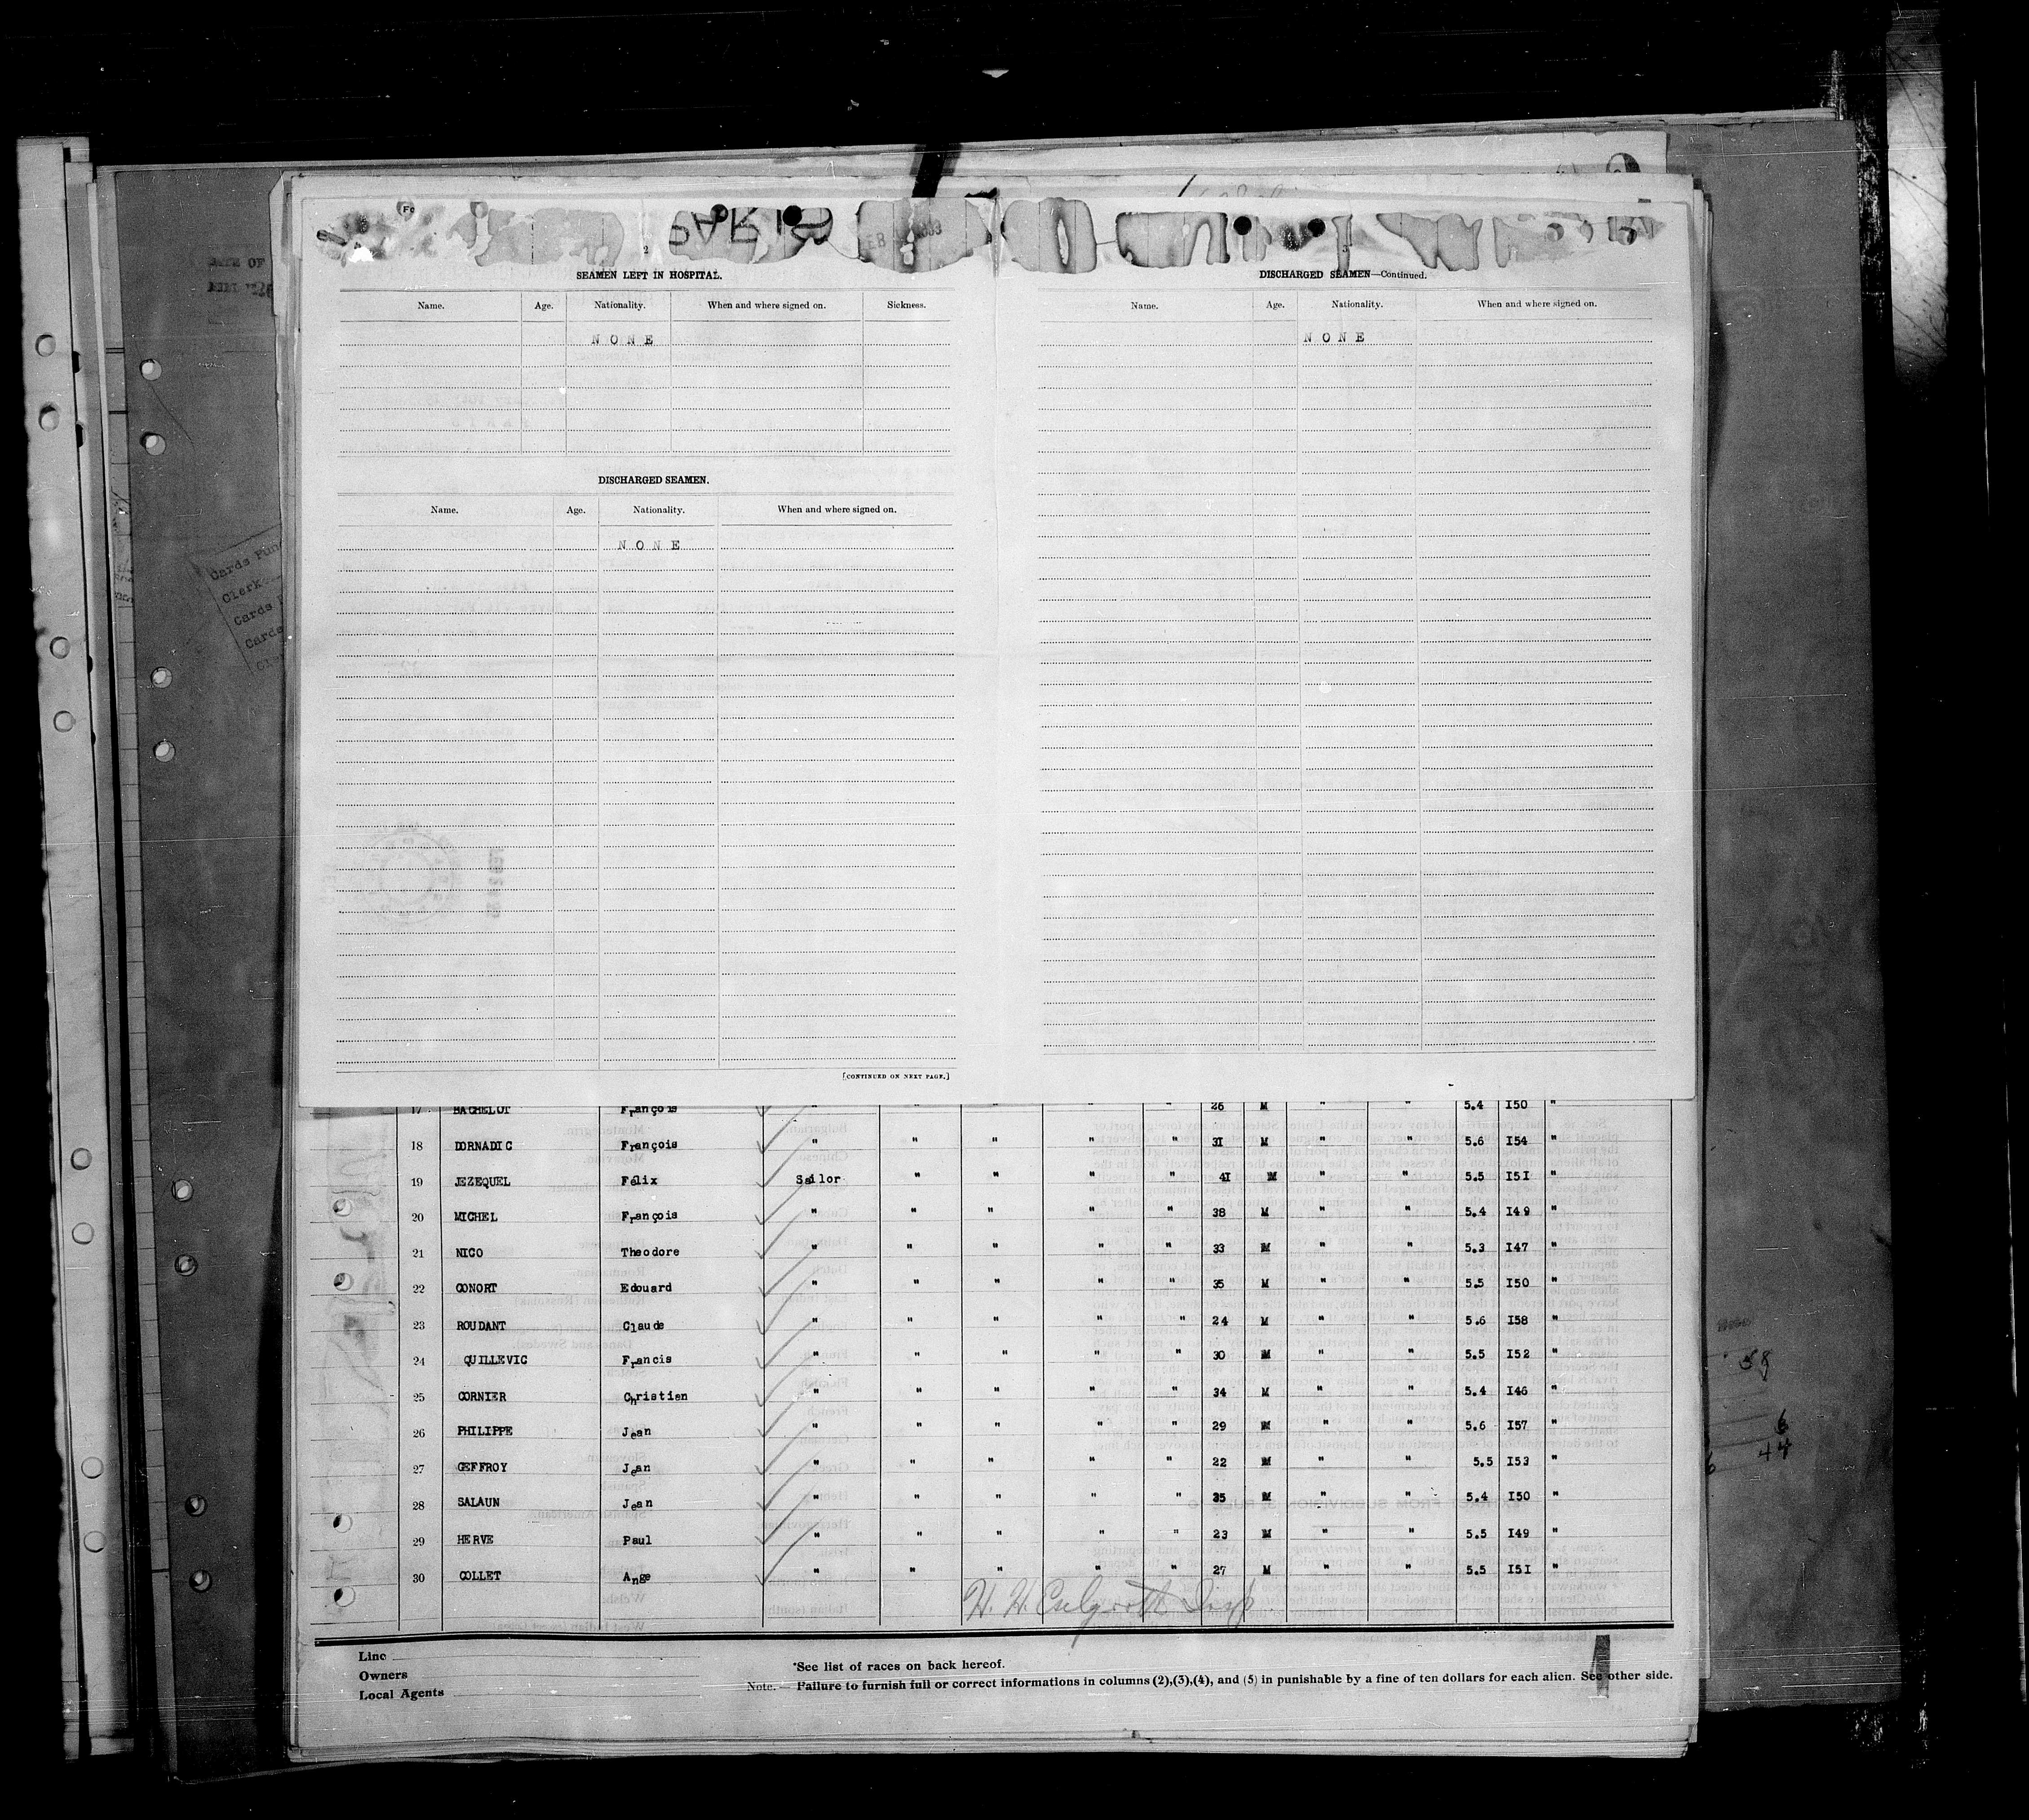 PARIS
2
SEAMEN LEFT IN HOSPITAL.
Name. Age. Nationality. When and where signed on. Sickness.
N O N E
DISCHARGED SEAMEN.
Name. Age. Nationality. When and where signed on.
N O N E
[CONTINUED ON NEXT PAGE.]
3
DISCHARGED SEAMEN—Continued.
Name. Age. Nationality. When and where signed on.
N O N E
Cards
Clerk
Cards
Cards
17 BACHELOT François " " " " " 26 M " " 5.4 I50 "
18 DORNADIC François " " " " " 3I M " " 5.6 I54 "
19 JEZEQUEL Félix Sailor " " " " 4I M " " 5.5 I5I "
20 MICHEL François " " " " " 38 M " " 5.4 I49 "
21 NICO Theodore " " " " " 33 M " " 5.3 I47 "
22 CONORT Edouard " " " " " 35 M " " 5.5 I50 "
23 ROUDANT Claude " " " " " 24 M " " 5.6 I58 "
24 QUILLEVIC Francis " " " " " 30 M " " 5.5 I52 "
25 CORNIER Christian " " " " " 34 M " " 5.4 I46 "
26 PHILIPPE Jean " " " " " 29 M " " 5.6 I57 "
27 GEFFROY Jean " " " " " 22 M " " 5.5 I53 "
28 SALAUN Jean " " " " " 35 M " " 5.4 I50 "
29 HERVE Paul " " " " " 23 M " " 5.5 I49 "
30 COLLET Ange " " " " " 27 M " " 5.5 I5I "
H. H.
Line
Owners
Local Agents
*See list of races on back hereof.
Note. — Failure to furnish full or correct informations in columns (2),(3),(4), and (5) in punishable by a fine of ten dollars for each alien. See other side.
58
6
44